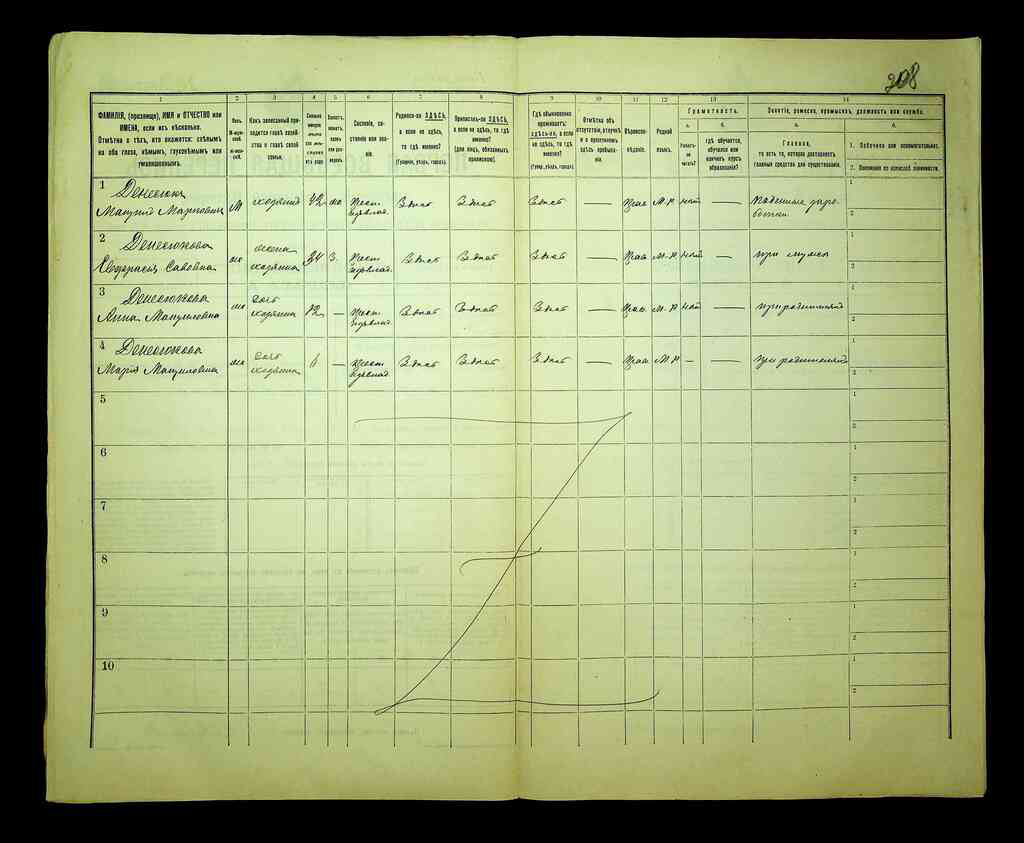 208
1 2 3 4 5 6 7 8 9 10 11 12 13 14
ФАМИЛІЯ, (прозвище), ИМЯ и ОТЧЕСТВО или
ИМЕНА, если ихъ нѣсколько.
Отмѣтка о тѣхъ, кто окажется: слѣпымъ
на оба глаза, нѣмымъ, глухонѣмымъ или
умалишеннымъ.
Полъ.
Какъ записанный при-
ходится главѣ хозяй-
ства и главѣ своей
семьи.
Сословіе, со-
стояніе или зва-
ніе.
Родился-ли ЗДѢСЬ,
а если не здѣсь,
то гдѣ именно?
(Губернія, уѣздъ, городъ).
Приписанъ-ли ЗДѢСЬ,
а если не здѣсь, то гдѣ
именно?
(для лицъ, обязанныхъ
припискою).
Гдѣ обыкновенно
проживаетъ:
здѣсь-ли, а если
не здѣсь, то гдѣ
именно?
(Губер., уѣздъ, городъ).
Отмѣтка объ
отсутствіи, отлучкѣ
и о временномъ
здѣсь пребыва-
ніи.
Вѣроиспо-
вѣданіе.
Родной
языкъ.
Грамотность.
а.
Умѣетъ-
ли
читать?
б.
гдѣ обучается,
обучался или
кончилъ курсъ
образованія?
Занятіе, ремесло, промыселъ, должность или служба.
а.
Главное,
то есть то, которое доставляетъ
главныя средства для существованія.
б.
1. Побочное или вспомогательное.
2. Положеніе по воинской повинности.
1 Денесюкъ
Мануилъ Марковичъ м хозяинъ 42 Крест. Здѣсь Здѣсь Здѣсь — Прав М-Р нѣт —
1
2
2 Денесюкова
Евфросинія Саввовна жена 34 3. Крест. Здѣсь Здѣсь Здѣсь — Прав М-Р нѣт — при мужѣ
хозяина
1
2
3 Денесюкова
Анна Мануиловна дочь 12 — Крест. Здѣсь Здѣсь Здѣсь — Прав М-Р нѣт — при родителяхъ
хозяина
1
2
4 Денесюкова
Марія Мануиловна дочь — Крест. Здѣсь Здѣсь Здѣсь — Прав М-Р — — при родителяхъ
хозяина
1
2
5
1
2
6
1
2
7
1
2
8
1
2
9
1
2
10
1
2